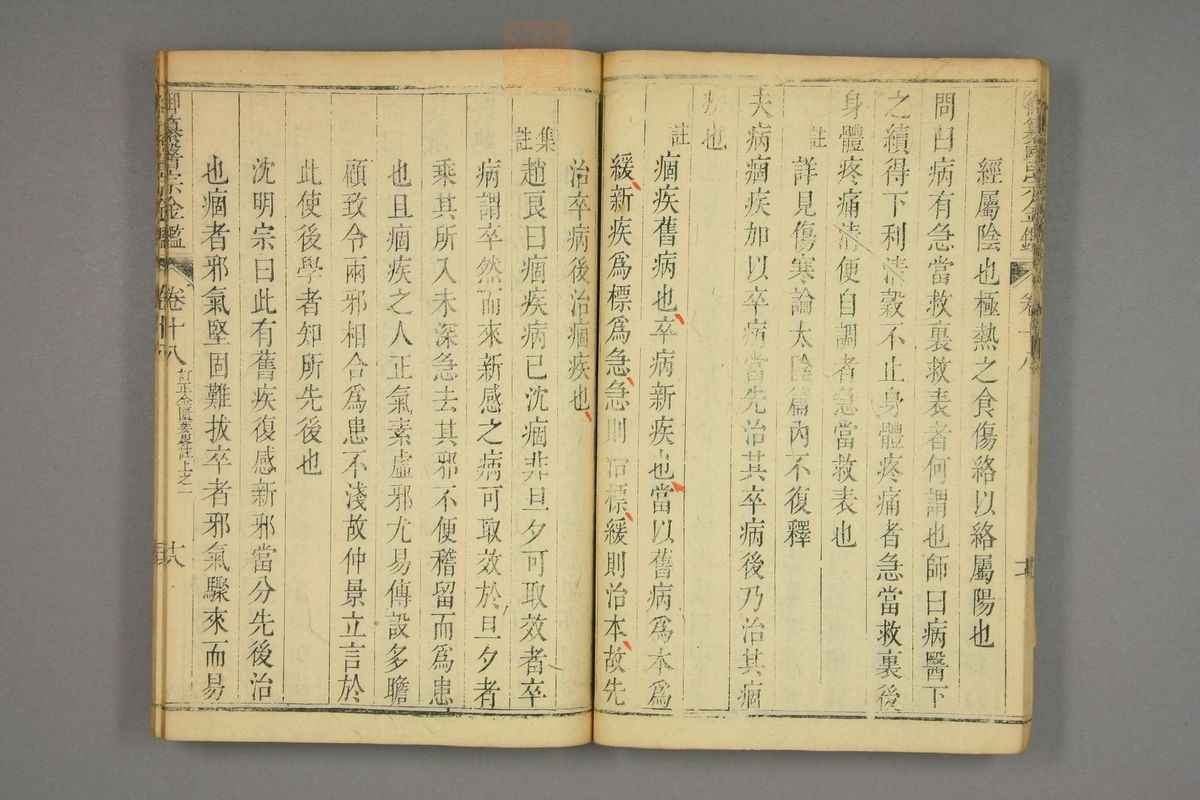 經屬陰也極熱之食傷絡以絡屬陽也
問曰病有急當救裏救表者何謂也師曰病醫下
之續得下利清穀不止身體疼痛者急當救裏後
身體疼痛清便自調者急當救表也
註
詳見傷寒論太陰篇內不復釋
夫病痼疾加以卒病當先治其卒病後乃治其痼
疾也
註
痼疾舊病也卒病新疾也當以舊病爲本爲
緩新疾爲標爲急急則治標緩則治本故先
治卒病後治痼疾也
集註
趙良曰痼疾病已沈痼非旦夕可取效者卒
病謂卒然而來新感之病可取效於旦夕者
乘其所入未深急去其邪不便稽留而爲患
也且痼疾之人正氣素虛邪尤易傳設多瞻
顧致令兩邪相合爲患不淺故仲景立言於
此使後學者知所先後也
沈明宗曰此有舊疾復感新邪當分先後治
也痼者邪氣堅固難拔卒者邪氣驟來而易
御纂醫宗金鑑
卷十八
訂正金匱要畧註上之一
十八